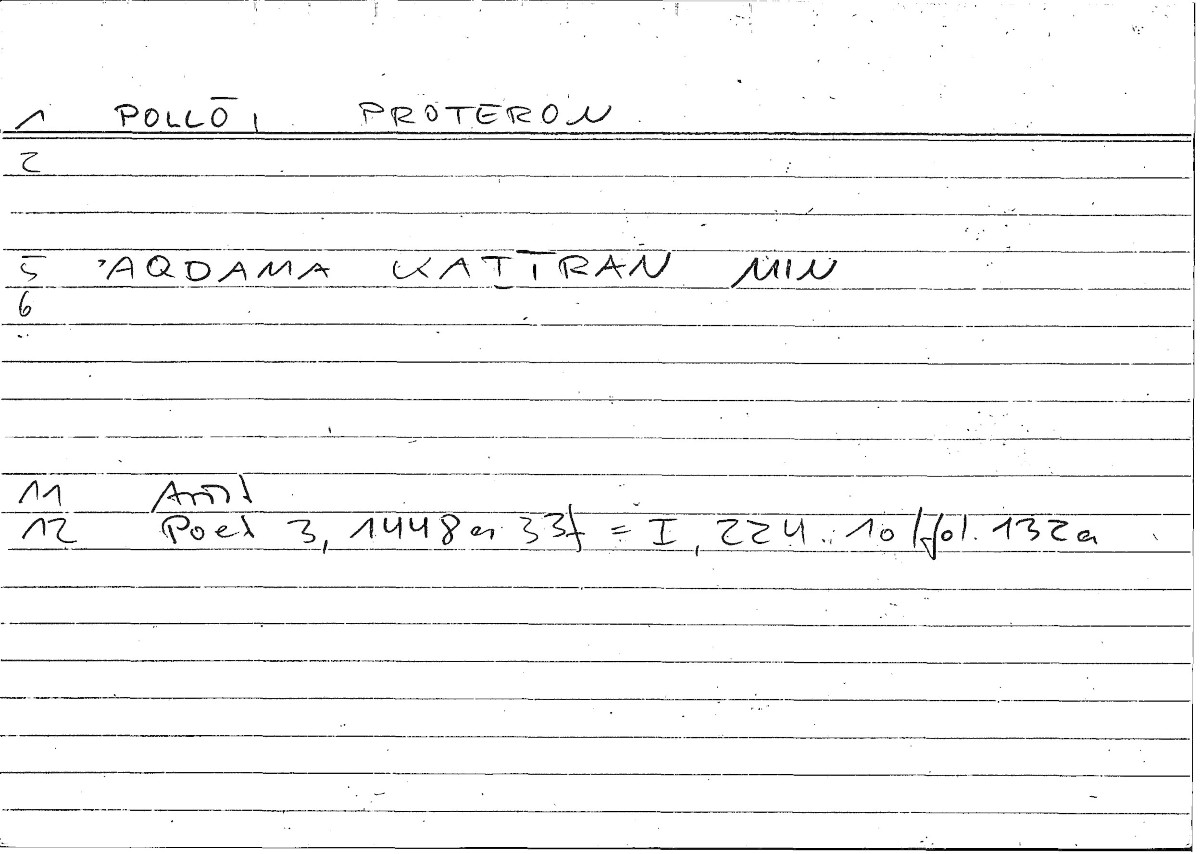 1 POLLŌ, PROTERON
2
5 'AQDAMA KAṮĪRAN MIN
6
11 Arist
12 Poet 3, 1448a 33f = I, 224.. 10/fol. 132a